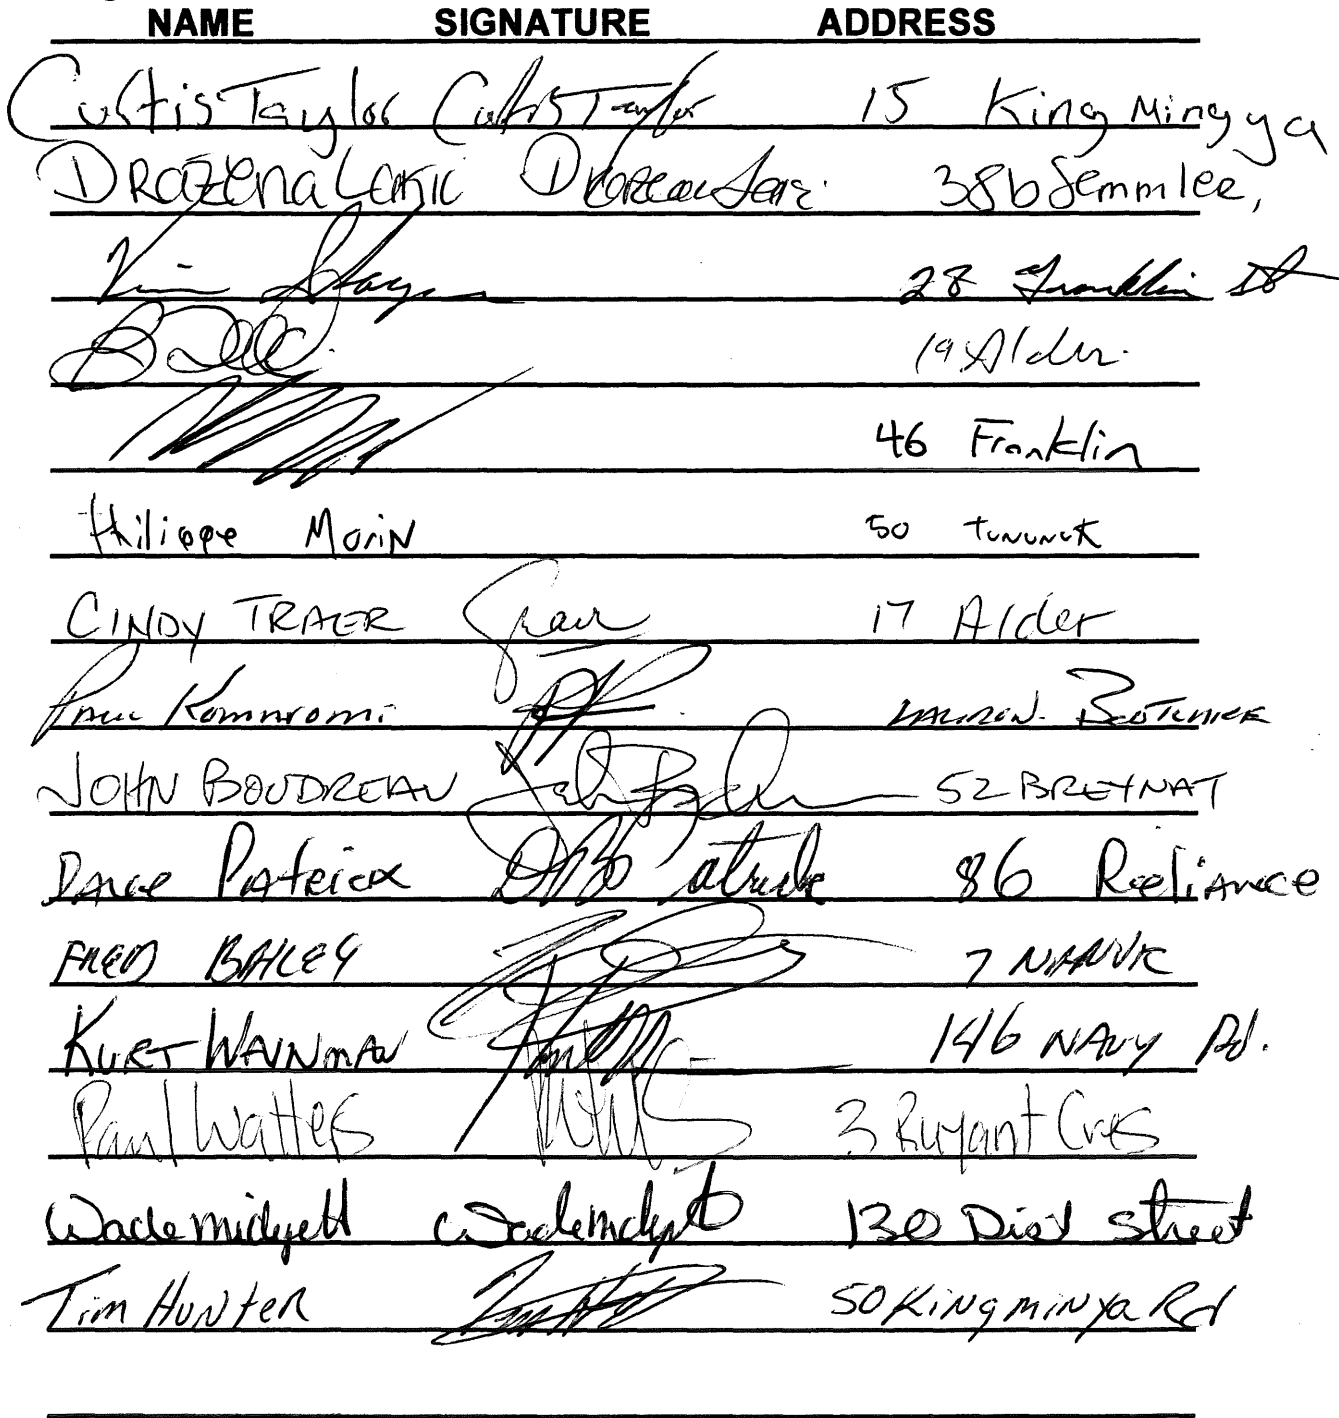 NAME SIGNATURE ADDRESS
Curtis Taylor Curtis Taylor 15 King Mingya
DRAZENA LAKIC 38b Semmler,
28 Franklin St
19 Alder.
46 Franklin
Philippe MoriN 50 TUNUNUK
CINDY TRAER 17 Alder
Paul Komaromi
JOHN BOUDREAU John 52 BREYNAT
Patrick 86 Reliance
FRED BAILEY 7 NANUK
KURT WAINMAN 146 NAVY Rd.
Paul Watters 3 Ruyant Cres
Wade Midgett Wade Midgett 130 Dist Street
Tim HUNTER 50 KiNgmiNya Rd